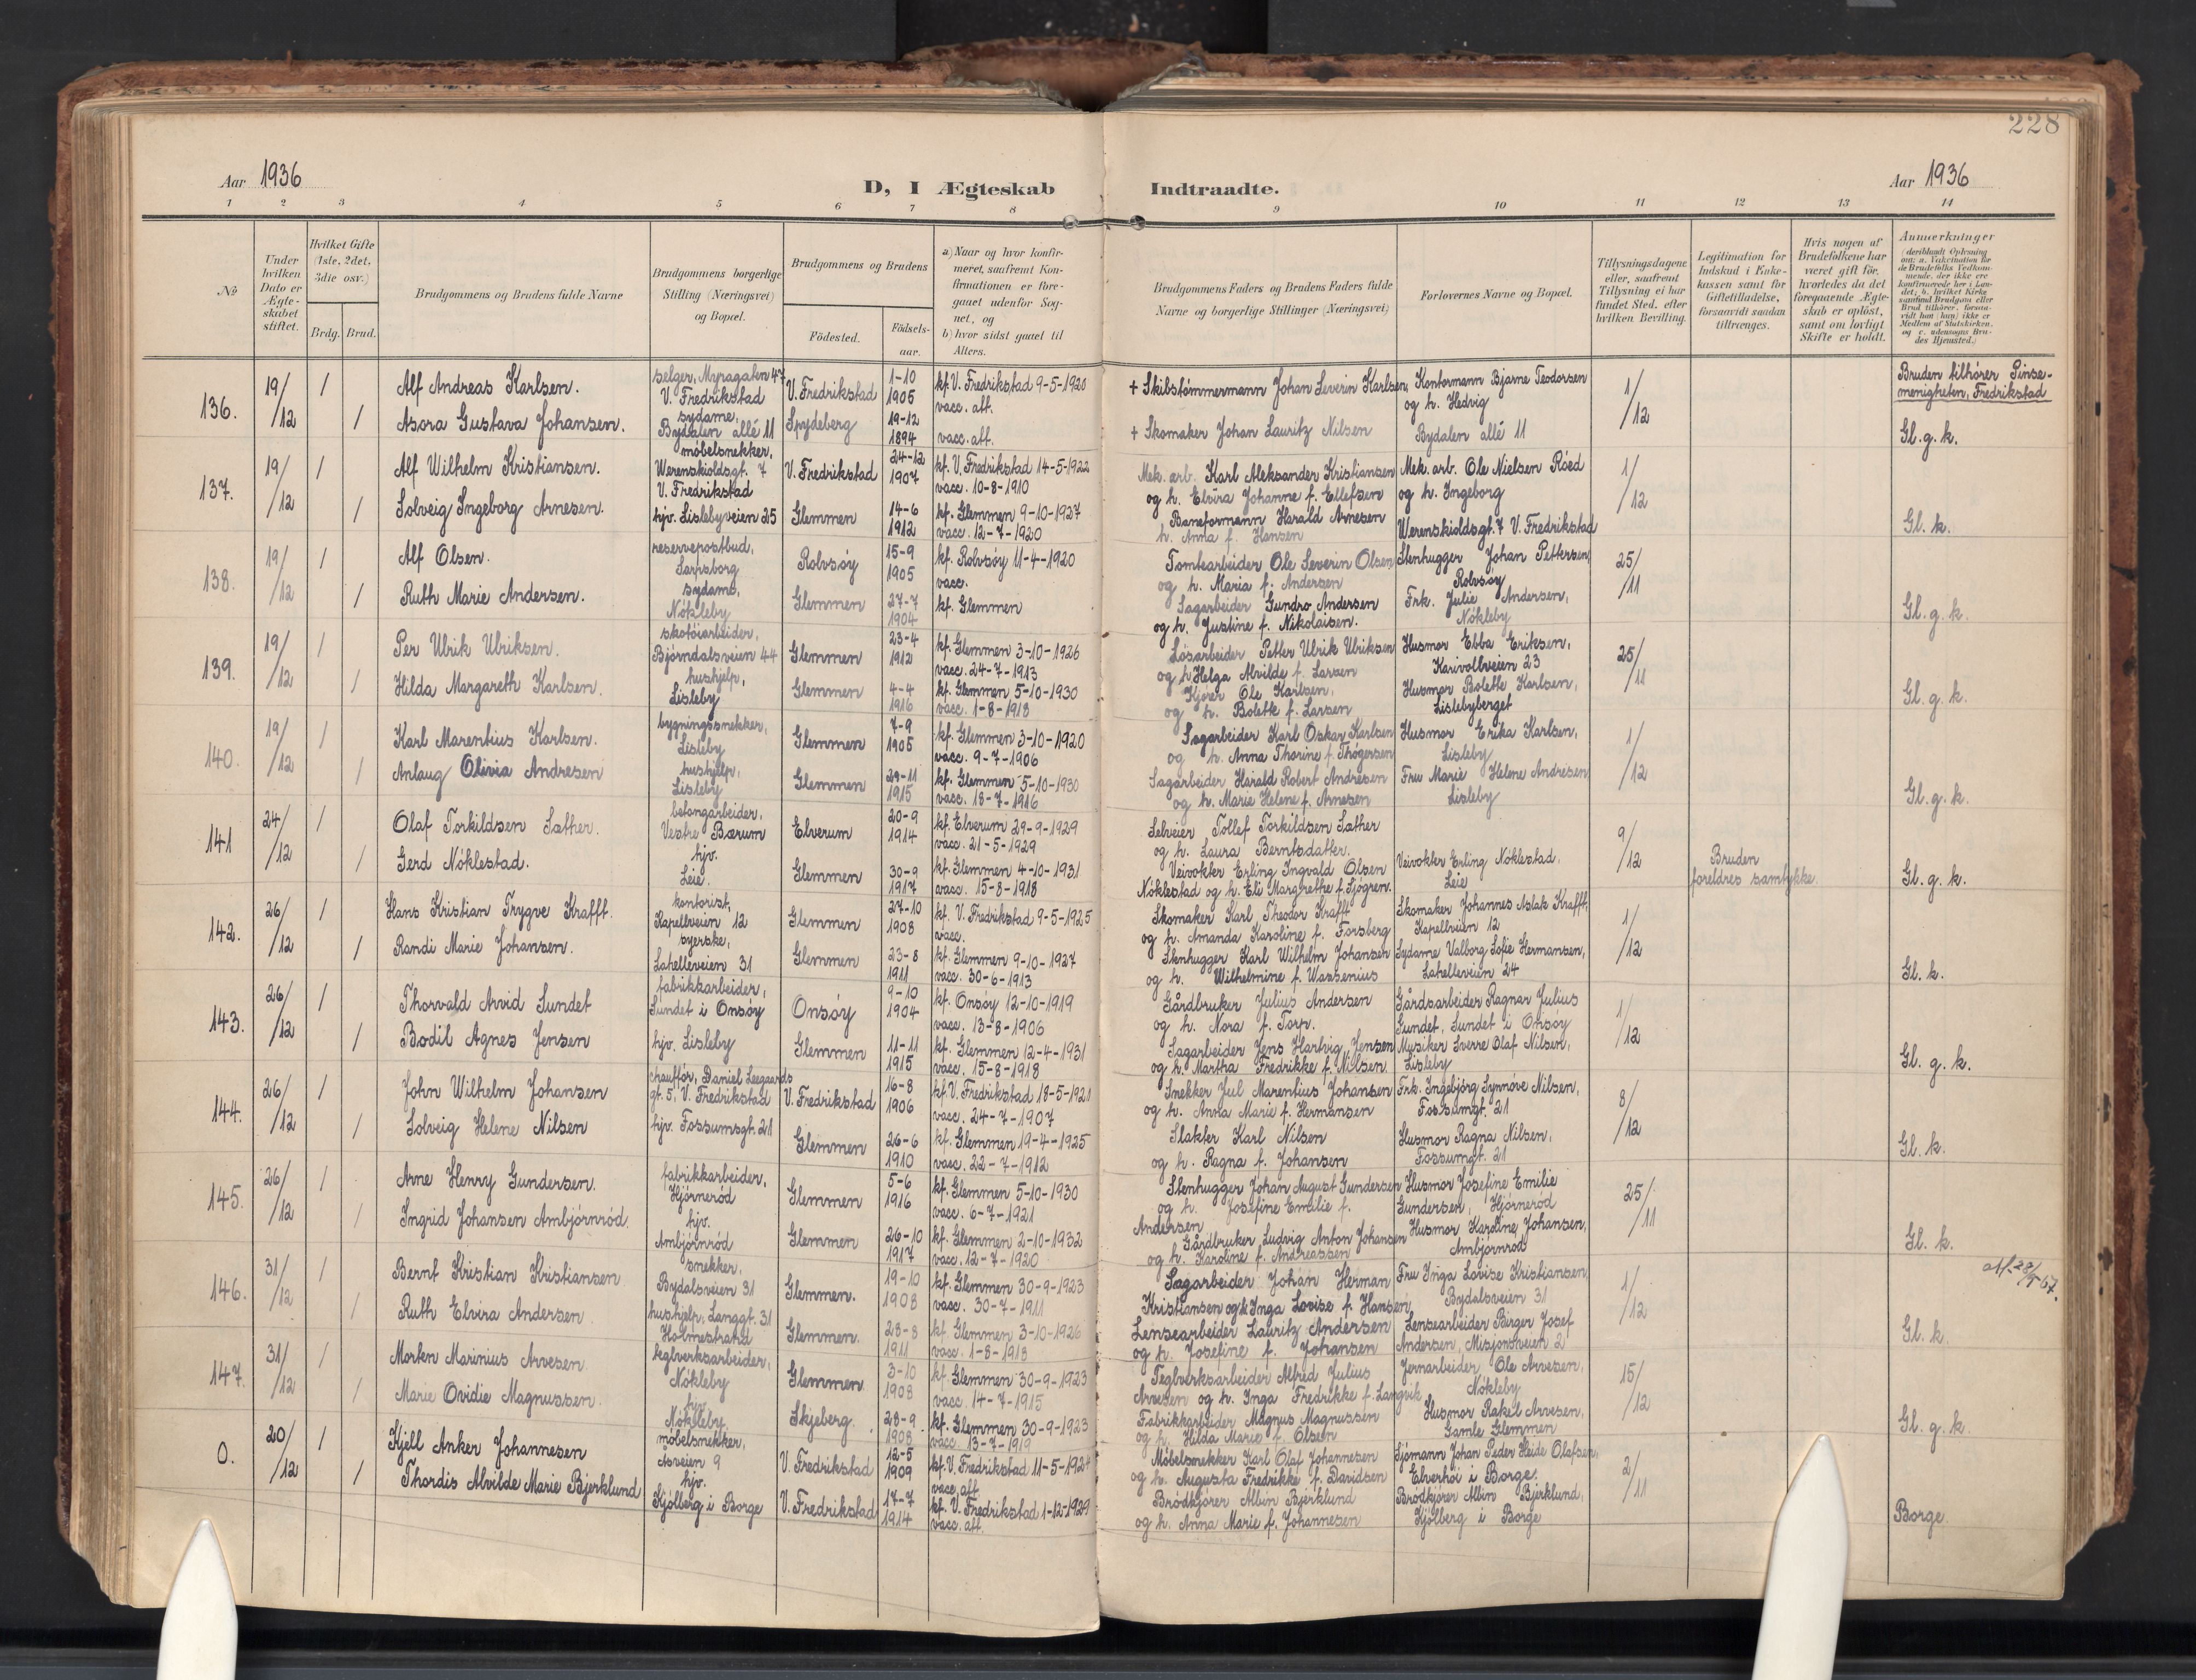 228
Aar 1936
D, I Ægteskab Indtraadte.
Aar 1936
1 2 3 4 5 6 7 8 9 10 11 12 13 14
№
Under hvilken Dato er Ægteskabet stiftet.
Hvilket Gifte (1ste, 2det, 3die osv.)
Brdg. Brud.
Brudgommens og Brudens fulde Navne
Brudgommens borgerlige Stilling (Næringsvei) og Bopæl.
Brudgommens og Brudens
Födested.
Födselsaar.
a) Naar og hvor konfirmeret, saafremt Konfirmationen er foregaaet udenfor Sognet, og
b) hvor sidst gaaet til Alters.
Brudgommens Faders og Brudens Faders fulde Navne og borgerlige Stillinger (Næringsvei)
Forlovernes Navne og Bopæl.
Tillysningsdagene eller, saafremt Tillysning ei har fundet Sted, efter hvilken Bevilling.
Legitimation for Indskud i Enkekassen samt for Giftetilladelse, forsaavidt saadan tiltrænges.
Hvis nogen af Brudefolkene har været gift för, hvorledes da det foregaaende Ægteskab er oplöst, samt om lovligt Skifte er holdt.
Anmerkninger
(deriblandt Oplysning om: a. Vakcination for de Brudefolks Vedkommende, der ikke ere konfirmerede her i Landet; b. hvilket Kirkesamfund Brudgom eller Brud tilhörer, forsaavidt han (hun) ikke er Medlem af Statskirken, og c. udensogns Brudes Hjemsted.)
136. 19/12 1 Alf Andreas Karlsen. selger, Myragaten 47 V. Fredrikstad V. Fredrikstad 1-10 1905 kf. V. Fredrikstad 9-5-1920 vacc. att. + Skibstømmermann Johan Severin Karlsen Kontormann Bjarne Teodorsen og h. Hedvig 1/12 Bruden tilhører Pinsemenigheten, Fredrikstad
1 Asora Gustava Johansen. sydame, Bydalen allé 11 Spydeberg 19-12 1894 vacc. att. + Skomaker Johan Lauritz Nilsen Bydalen allé 11 Gl. g. k.
137. 19/12 1 Alf Wilhelm Kristiansen. møbelsnekker, Werenskioldsgt. 7 V. Fredrikstad V. Fredrikstad 24-12 1907 kf. V. Fredrikstad 14-5-1922 vacc. 10-8-1910 Mek. arb. Karl Aleksander Kristiansen og h. Elvira Johanne f. Ellefsen Mek. arb. Ole Nielsen Röed og h. Ingeborg 1/12
1 Solveig Ingeborg Arnesen. hjv. Lislebyveien 25 Glemmen 14-6 1912 kf. Glemmen 9-10-1927 vacc. 12-7-1920 Baneformann Harald Arnesen h. Anna f. Hansen Werenskioldsgt. 7 V. Fredrikstad Gl. k.
138. 19/12 1 Alf Olsen. reservepostbud, Sarpsborg Rolvsøy 15-9 1905 kf. Rolvsøy 11-4-1920 vacc. Tomtearbeider Ole Severin Olsen og h. Maria f. Andersen Stenhugger Johan Pettersen, Rolvsøy 25/11
1 Ruth Marie Andersen. sydame, Nökleby Glemmen 27-7 1904 kf. Glemmen Sagarbeider Gundro Andersen og h. Justine f. Nikolaisen. Frk. Julie Andersen, Nökleby Gl. g. k.
139. 19/12 1 Per Ulrik Ulriksen. skotöiarbeider, Björndalsveien 44 Glemmen 23-4 1912 kf. Glemmen 3-10-1926 vacc. 24-7-1913 Lösarbeider Petter Ulrik Ulriksen og h Helga Alvilde f. Larsen Husmor Ebba Eriksen, Karivollveien 23 25/11
1 Hilda Margareth Karlsen. hushjelp, Lisleby Glemmen 4-4 1916 kf. Glemmen 5-10-1930 vacc. 1-8-1918 Kjörer Ole Karlsen, og h. Bolette f. Larsen Husmor Bolette Karlsen, Lislebyberget Gl. g. k.
140. 19/12 1 Karl Marentius Karlsen. bygningssnekker, Lisleby Glemmen 7-9 1905 kf. Glemmen 3-10-1920 vacc. 9-7-1906 Sagarbeider Karl Oskar Karlsen og h. Anna Thorine f. Thögersen Husmor Erika Karlsen, Lisleby 1/12
1 Anlaug Olivia Andresen hushjelp, Lisleby Glemmen 29-11 1915 kf. Glemmen 5-10-1930 vacc. 18-7-1916 Sagarbeider Harald Robert Andresen og h. Marie Helene f. Arnesen Fru Marie Helene Andresen Lisleby Gl. g. k.
141 24/12 1 Olaf Torkildsen Sæther. betongarbeider, Vestre Bærum Elverum 20-9 1914 kf. Elverum 29-9-1929 vacc. 21-5-1929 Selveier Tollef Torkildsen Sæther og h. Laura Berntsdatter. 9/12
1 Gerd Nöklestad. hjv. Leie. Glemmen 30-9 1917 kf. Glemmen 4-10-1931 vacc. 15-8-1918 Veivokter Erling Ingvald Olsen Nöklestad og h. Eli Margrethe f. Sjögren. Veivokter Erling Nöklestad, Leie Bruden foreldres samtykke. Gl. g. k.
142. 26/12 1 Hans Kristian Trygve Krafft. kontorist, Kapellveien 12 Glemmen 27-10 1908 kf. V. Fredrikstad 9-5-1925 vacc. Skomaker Karl Theodor Krafft og h. Amanda Karoline f. Forsberg Skomaker Johannes Aslak Krafft, Kapellveien 12 1/12
1 Randi Marie Johansen. syerske, Lahelleveien 31 Glemmen 23-8 1911 kf. Glemmen 9-10-1927 vacc. 30-6-1913 Stenhugger Karl Wilhelm Johansen og h. Wilhelmine f. Wassenius Sydame Valborg Sofie Hermansen, Lahelleveien 24 Gl. k.
143. 26/12 1 Thorvald Arvid Sundet fabrikkarbeider, Sundet i Onsøy Onsøy 9-10 1904 kf. Onsøy 12-10-1919 vacc. 13-8-1906 Gårdbruker Julius Andersen og h. Nora f. Torp. Gårdsarbeider Ragnar Julius Sundet, Sundet i Onsøy 1/12
1 Bodil Agnes Jensen hjv. Lisleby Glemmen 11-11 1915 kf. Glemmen 12-4-1931 vacc. 15-8-1918 Sagarbeider Jens Hartvig Jensen og h. Martha Fredrikke f. Nilsen Musiker Sverre Olaf Nilsen, Lisleby Gl. g. k.
144. 26/12 1 John Wilhelm Johansen chauffør, Daniel Leegaards gt. 5, V. Fredrikstad V. Fredrikstad 16-8 1906 kf. V. Fredrikstad 18-5-1921 vacc. 24-7-1907 Snekker Jul Marentius Johansen og h. Anna Marie f. Hermansen Frk. Ingebjörg Synnöve Nilsen, Fossumgt. 21 8/12
1 Solveig Helene Nilsen hjv. Fossumsgt. 21 Glemmen 26-6 1910 kf. Glemmen 19-4-1925 vacc. 22-7-1912 Slakter Karl Nilsen og h. Ragna f. Johansen Husmor Ragna Nilsen, Fossumgt. 21 Gl. k.
145. 26/12 1 Arne Henry Gundersen. fabrikkarbeider, Hjørnerød Glemmen 5-6 1916 kf. Glemmen 5-10-1930 vacc. 6-7-1921 Stenhugger Johan August Gundersen og h. Josefine Emilie f. Andersen Husmor Josefine Emilie Gundersen, Hjørnerød 25/11
1 Ingrid Johansen Ambjörnröd. hjv. Ambjörnröd Glemmen 26-10 1917 kf. Glemmen 2-10-1932 vacc. 12-7-1920 Gårdbruker Ludvig Anton Johansen og h. Karoline f. Andreassen Husmor Karoline Johansen, Ambjörnröd Gl. k.
146. 31/12 1 Bernt Kristian Kristiansen snekker, Bydalsveien 31 Glemmen. 19-10 1908 kf. Glemmen 30-9-1923 vacc. 30-7-1911 Sagarbeider Johan Herman Kristiansen og h. Inga Lovise f. Hansen Fru Inga Lovise Kristiansen, Bydalsveien 31 1/12
1 Ruth Elvira Andersen hushjelp, Langgt. 31 Holmestrand Glemmen. 23-8 1911 kf. Glemmen 3-10-1926 vacc. 1-8-1913 Lensearbeider Lauritz Andersen og h. Josefine f. Johansen Lensearbeider Birger Josef Andersen, Misjonsveien 2 Gl. k.
147. 31/12 1 Morten Marinius Arvesen. teglverksarbeider, Nökleby Glemmen 3-10 1908 kf. Glemmen 30-9-1923 vacc. 14-7-1915 Teglverksarbeider Alfred Julius Arvesen og h. Inga Fredrikke f. Langvik Jernarbeider Ole Arvesen, Nökleby 15/12
1 Marie Ovidie Magnussen. hjv. Nökleby Skjeberg. 28-9 1908 kf. Glemmen 30-9-1923 vacc. 13-7-1919 Fabrikkarbeider Magnus Magnussen og h. Hilda Marie f. Olsen Husmor Rakel Arvesen, Gamle Glemmen Gl. g. k.
0. 20/12 1 Kjell Anker Johannesen møbelsnekker, Åsveien 9 V. Fredrikstad 12-5 1909 kf. V. Fredrikstad 11-5-1924 vacc. att Möbelsnekker Karl Olaf Johannesen og h. Augusta Fredrikke f. Davidsen Sjömann Johan Peder Heide Olafsen, Elverhöi i Borge. 2/11
1 Thordis Alvilde Marie Bjerklund hjv. Kjölberg i Borge V. Fredrikstad 17-7 1914 kf. V. Fredrikstad 1-12-1929 vacc. att. Brödkjörer Albin Bjerklund og h. Anna Marie f. Johannesen Brödkjörer Albin Bjerklund, Kjölberg i Borge Borge.